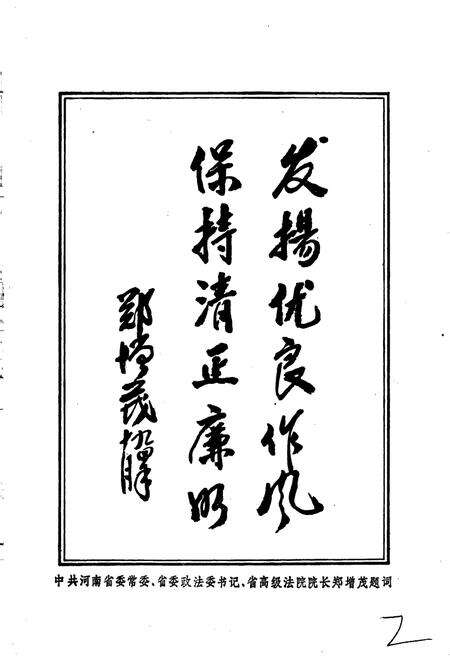 发揚优良作风
保持清正廉明
郑增茂
中共河南省委常委、省委政法委书记、省高级法院院长郑增茂题词
2